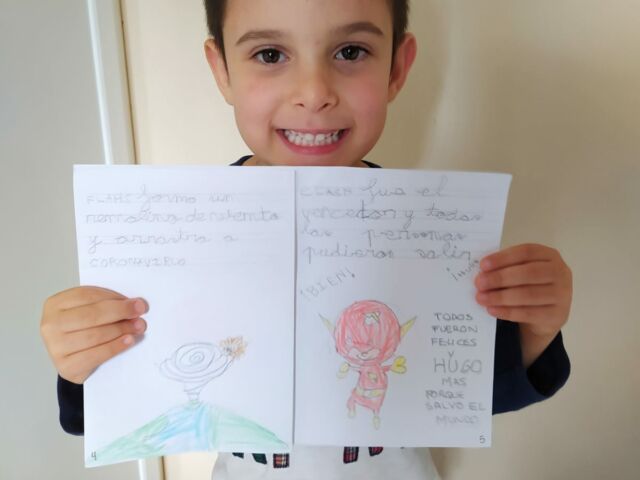 FLAHS formo un
rremolino de viento
y arrastro a
4
FLAHS fue el
vencedor y todas
las personas
pudieron salir
¡BIEN!
TODOS
FUERON
FELICES
Y
HUGO
MAS
PORQUE
SALVO EL
MUNDO
5